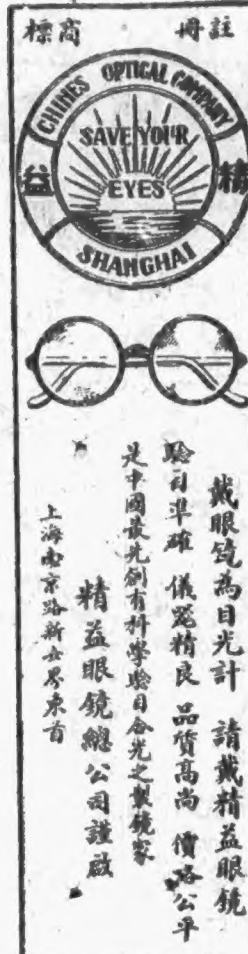 註冊商標
CHINES OPTICAL COMPANY
精益
SAVE YOUR
EYES
SHANGHAI
戴眼鏡爲目光計 請戴精益眼鏡
驗目準確 儀器精良 品質高尚 價格公平
是中國最先創有科學驗目合光之製鏡家
精益眼鏡總公司謹啟
上海南京路新世界東首